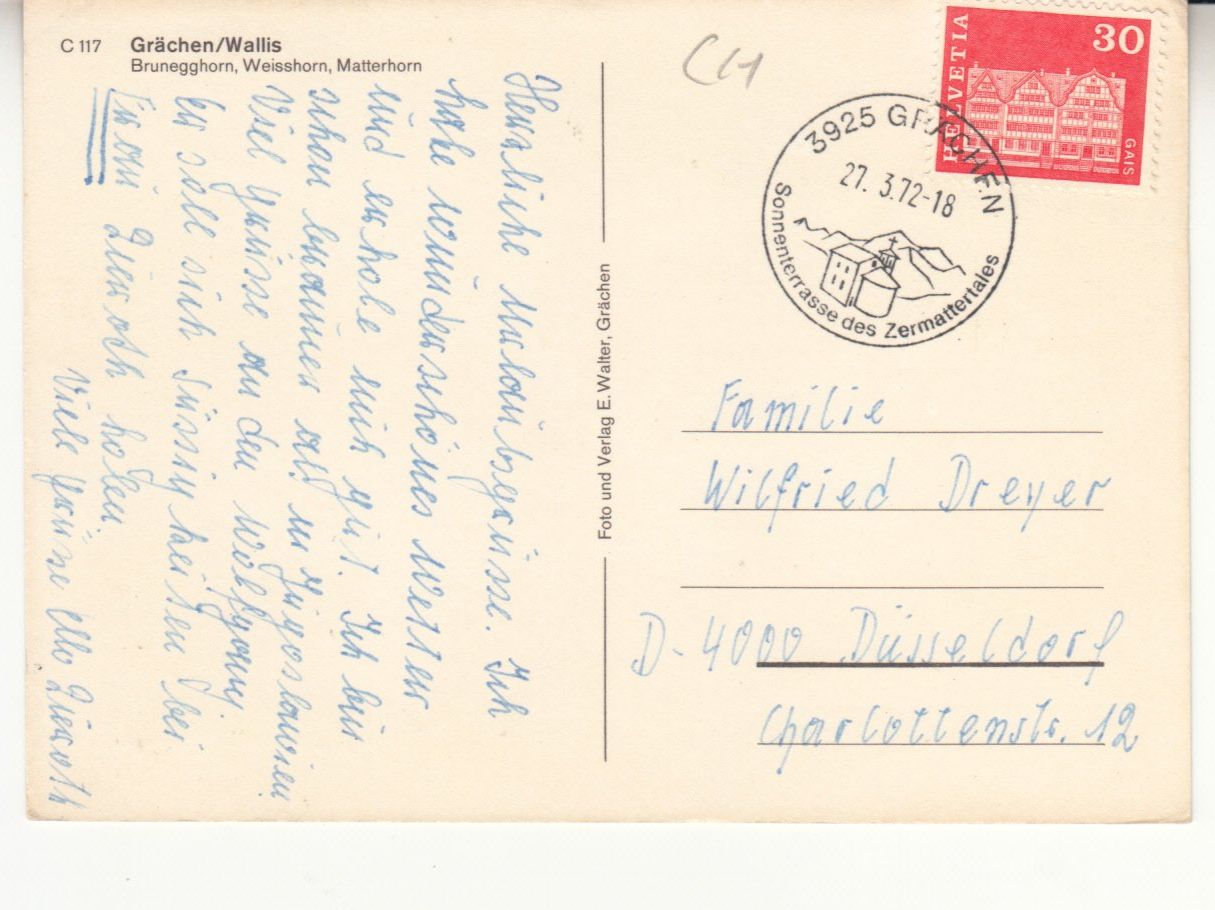 C 117 Grächen/Wallis
Brunegghorn, Weisshorn, Matterhorn
CH
HELVETIA
30
GAIS
3925 GRÄCHEN
27. 3.72-18
Sonnenterrasse des Zermattertales
Herzliche Urlaubsgrüsse. Ich
habe wunderschönes Wetter
und erhole mich gut. Ich bin
schon brauner als in Jugoslawien
Viel Grüsse an den Wolfgang.
er soll sich Süssigkeiten bei
Frau holen
Viele Grüsse
Foto und Verlag E. Walter, Grächen
Familie
Wilfried Dreyer
D-4000 Düsseldorf
Charlottenstr. 12